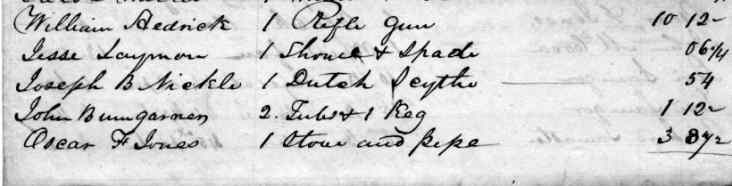 William Hedrick 1 Rifle Gun 10 12½
Jesse Laymon 1 Shovel & Spade 06¼
Joseph B Nickle 1 Dutch Scythe 54
John Bumgarner 2 Tubs & 1 Keg 1 12½
Oscar F Jones 1 Stove and pipe 3 87½